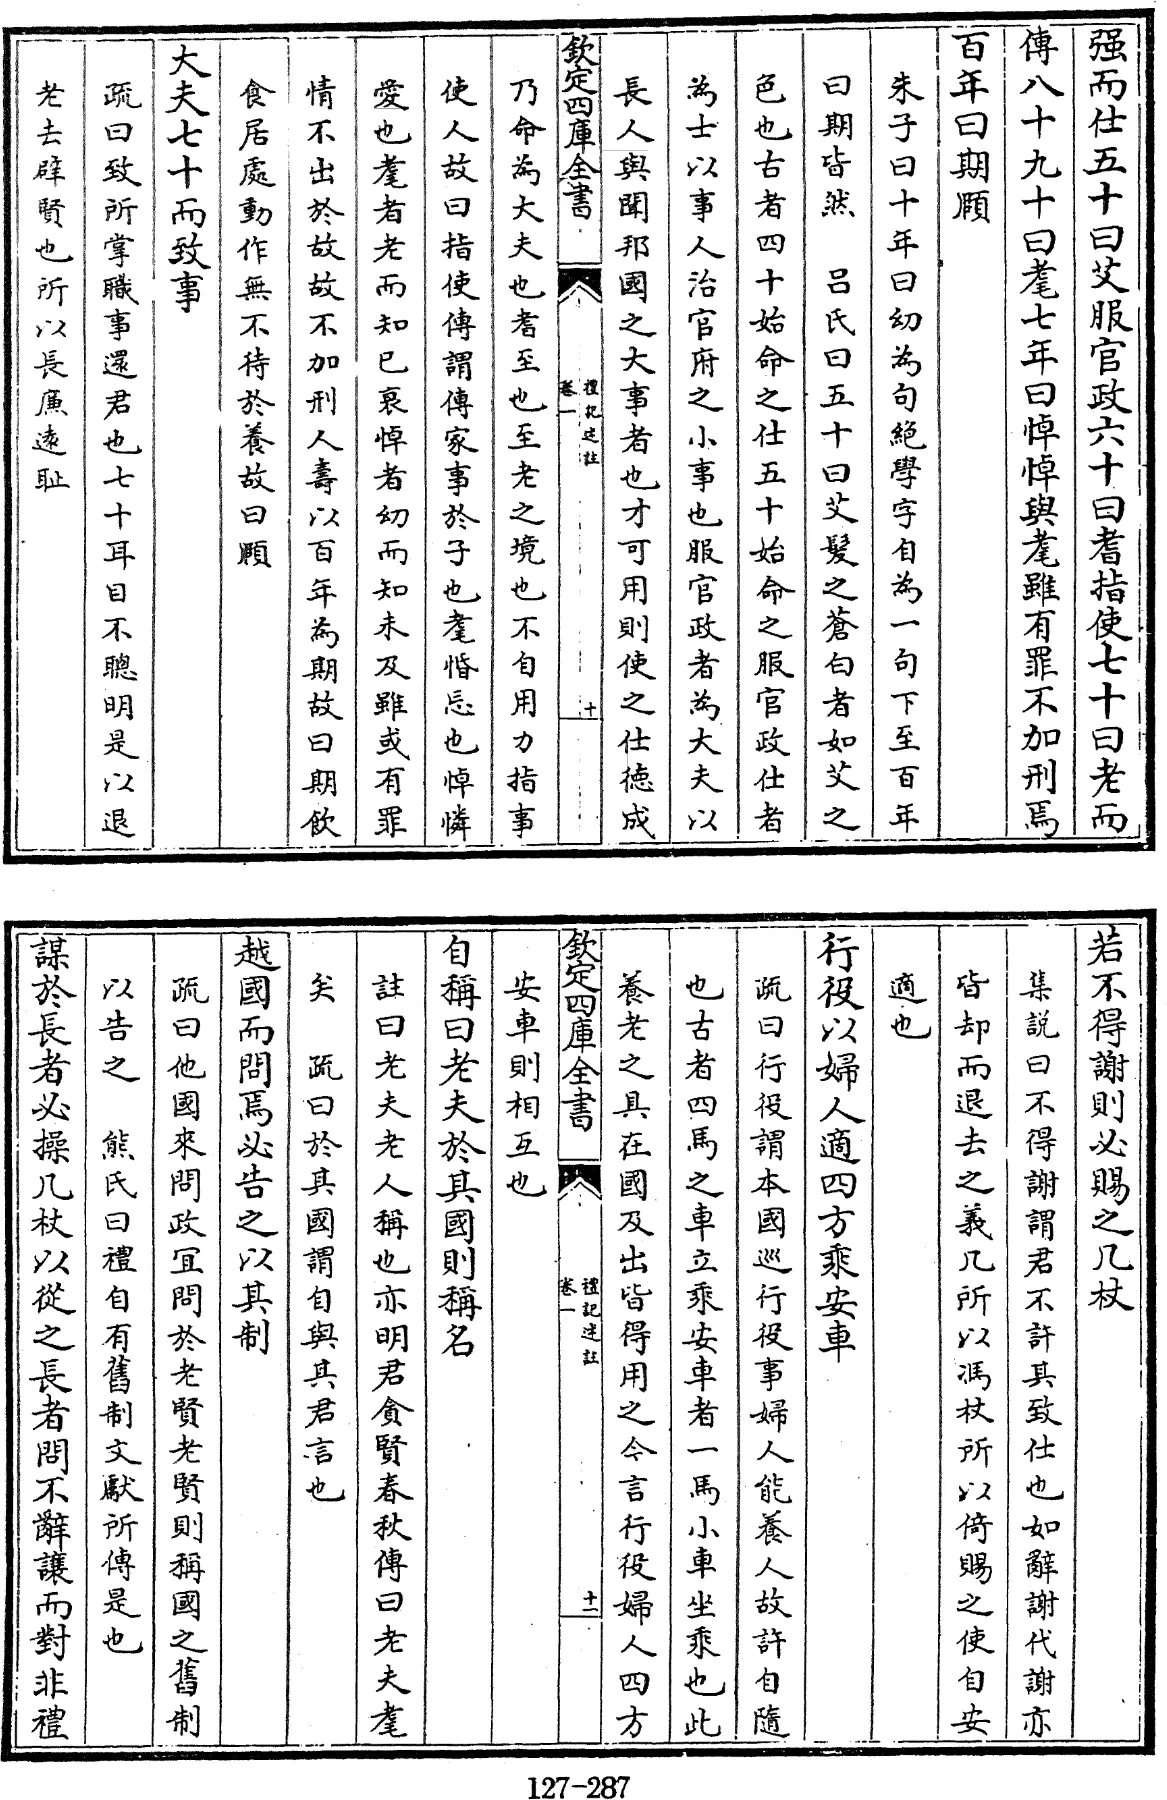 强而仕五十曰艾服官政六十曰耆指使七十曰老而
傳八十九十曰耄七年曰悼悼與耄雖有罪不加刑焉
百年曰期頤
朱子曰十年曰幼為句絶學字自為一句下至百年
曰期皆然　吕氏曰五十曰艾髮之蒼白者如艾之
色也古者四十始命之仕五十始命之服官政仕者
為士以事人治官府之小事也服官政者為大夫以
長人與聞邦國之大事者也才可用則使之仕德成
欽定四庫全書
禮記述註
卷一
十
乃命為大夫也耆至也至老之境也不自用力指事
使人故曰指使傳謂傳家事於子也耄惛忘也悼憐
愛也耄者老而知已衰悼者幼而知未及雖或有罪
情不出於故故不加刑人壽以百年為期故曰期飲
食居處動作無不待於養故曰頤
大夫七十而致事
疏曰致所掌職事還君也七十耳目不聰明是以退
老去辟賢也所以長廉遠恥
若不得謝則必賜之几杖
集説曰不得謝謂君不許其致仕也如辭謝代謝亦
皆却而退去之義几所以馮杖所以倚賜之使自安
適也
行役以婦人適四方乘安車
疏曰行役謂本國巡行役事婦人能養人故許自隨
也古者四馬之車立乘安車者一馬小車坐乘也此
養老之具在國及出皆得用之今言行役婦人四方
欽定四庫全書
禮記述註
卷一
十一
安車則相互也
自稱曰老夫於其國則稱名
註曰老夫老人稱也亦明君貪賢春秋傳曰老夫耄
矣　疏曰於其國謂自與其君言也
越國而問焉必告之以其制
疏曰他國來問政宜問於老賢老賢則稱國之舊制
以告之　熊氏曰禮自有舊制文獻所傳是也
謀於長者必操几杖以從之長者問不辭讓而對非禮
127-287